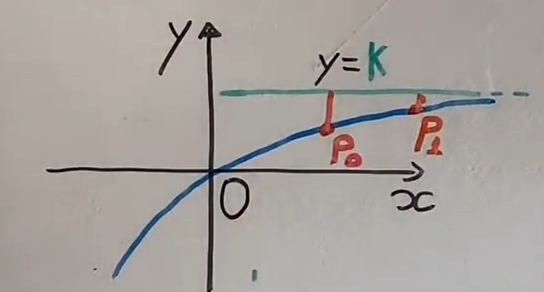 y
y = K
P₀
P₁
O
x